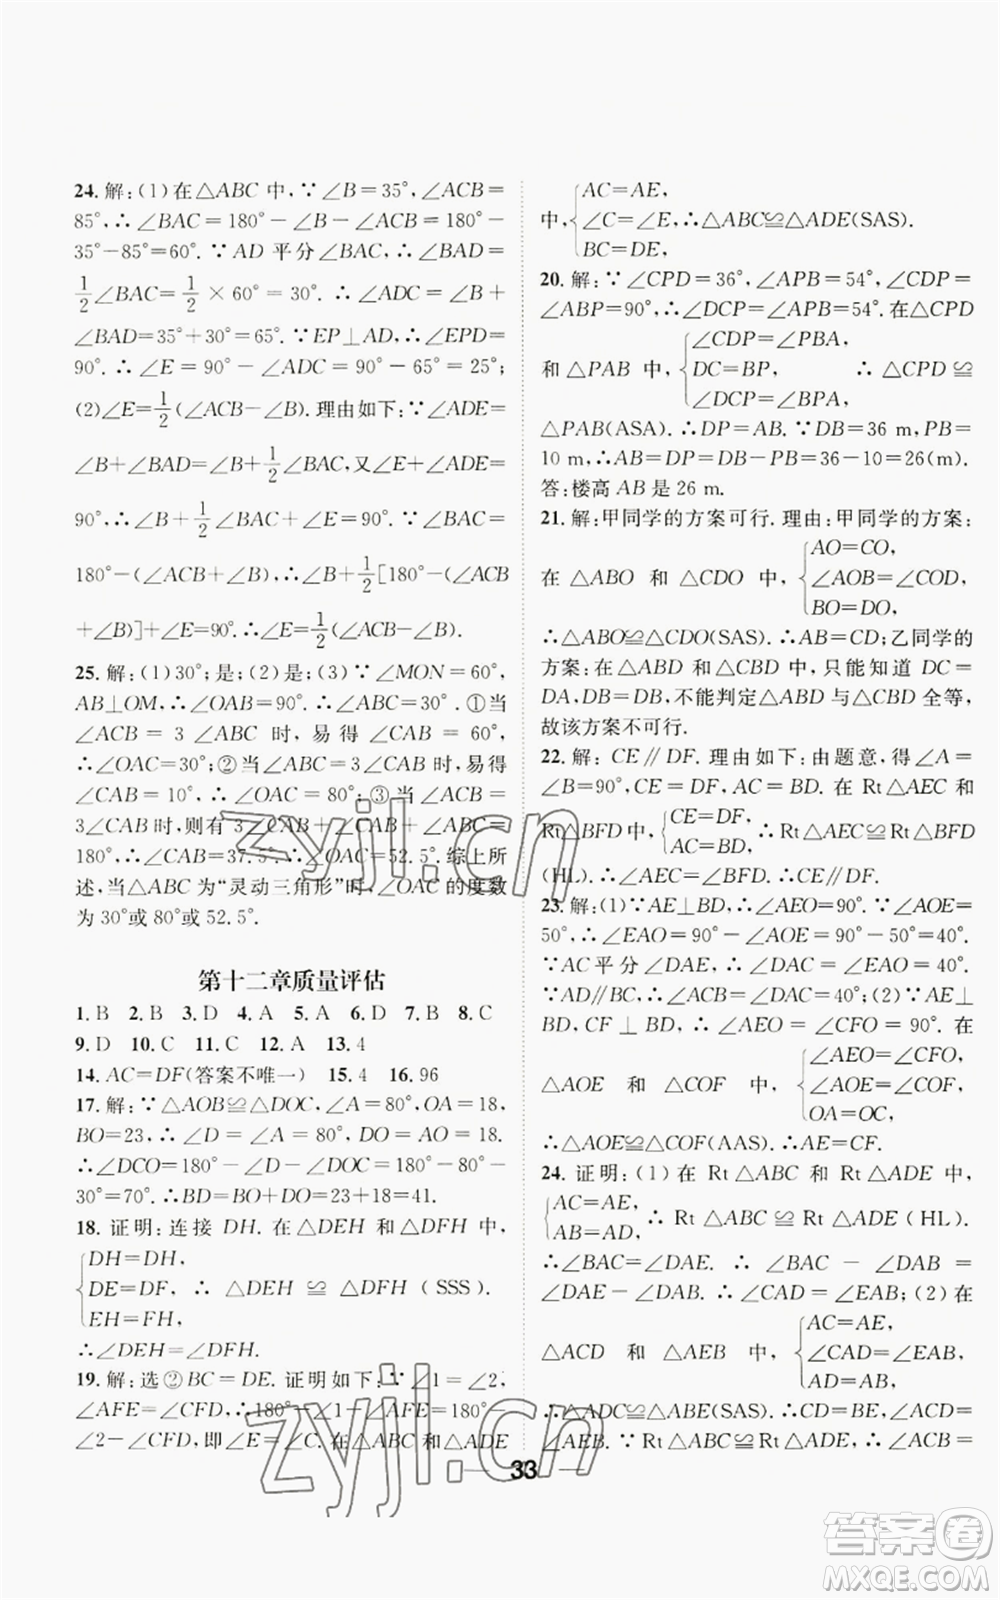 24. 解:(1)在△ABC 中,∵∠B=35°,∠ACB=
85°,∴∠BAC=180°-∠B-∠ACB=180°-
35°-85°=60°. ∵AD 平分∠BAC,∴∠BAD=
1/2∠BAC=1/2×60°=30°. ∴∠ADC=∠B+
∠BAD=35°+30°=65°. ∵EP⊥AD,∴∠EPD=
90°. ∴∠E=90°-∠ADC=90°-65°=25°;
(2)∠E=1/2(∠ACB-∠B). 理由如下:∵∠ADE=
∠B+∠BAD=∠B+1/2∠BAC,又∠E+∠ADE=
90°,∴∠B+1/2∠BAC+∠E=90°. ∵∠BAC=
180°-(∠ACB+∠B),∴∠B+1/2[180°-(∠ACB
+∠B)]+∠E=90°. ∴∠E=1/2(∠ACB-∠B).
25. 解:(1)30°;是;(2)是;(3)∵∠MON=60°,
AB⊥OM,∴∠OAB=90°. ∴∠ABC=30°. ①当
∠ACB=3∠ABC 时,易得∠CAB=60°.
∴∠OAC=30°;②当∠ABC=3∠CAB时,易得
∠CAB=10°,∴∠OAC=80°;③当∠ACB=
3∠CAB时,则有3∠CAB+∠CAB+∠ABC=
180°,∴∠CAB=37.5°. ∴∠OAC=52.5°. 综上所
述,当△ABC为“灵动三角形”时,∠OAC的度数
为30°或80°或52.5°.
第十二章质量评估
1. B 2. B 3. D 4. A 5. A 6. D 7. B 8. C
9. D 10. C 11. C 12. A 13. 4
14. AC=DF(答案不唯一) 15. 4 16. 96
17. 解:∵△AOB≌△DOC,∠A=80°,OA=18,
BO=23,∴∠D=∠A=80°,DO=AO=18.
∴∠DCO=180°-∠D-∠DOC=180°-80°-
30°=70°. ∴BD=BO+DO=23+18=41.
18. 证明:连接 DH. 在△DEH 和△DFH 中,
{DH=DH,
DE=DF, ∴△DEH≌△DFH(SSS).
EH=FH,
∴∠DEH=∠DFH.
19. 解:选②BC=DE. 证明如下:∵∠1=∠2,
∠AFE=∠CFD,∴180°-∠1-∠AFE=180°-
∠2-∠CFD,即∠E=∠C. 在△ABC 和△ADE
{AC=AE,
中, ∠C=∠E,∴△ABC≌△ADE(SAS).
BC=DE,
20. 解:∵∠CPD=36°,∠APB=54°,∠CDP=
∠ABP=90°,∴∠DCP=∠APB=54°. 在△CPD
{∠CDP=∠PBA,
和△PAB 中, DC=BP, ∴△CPD≌
∠DCP=∠BPA,
△PAB(ASA). ∴DP=AB. ∵DB=36 m,PB=
10 m,∴AB=DP=DB-PB=36-10=26(m).
答:楼高 AB 是 26 m.
21. 解:甲同学的方案可行. 理由:甲同学的方案:
{AO=CO,
在△ABO 和△CDO 中, ∠AOB=∠COD,
BO=DO,
∴△ABO≌△CDO(SAS). ∴AB=CD;乙同学的
方案:在△ABD 和△CBD 中,只能知道 DC=
DA,DB=DB,不能判定△ABD与△CBD全等,
故该方案不可行.
22. 解:CE∥DF. 理由如下:由题意,得∠A=
∠B=90°,CE=DF,AC=BD. 在Rt△AEC和
{CE=DF,
Rt△BFD中, ∴Rt△AEC≌Rt△BFD
AC=BD,
(HL). ∴∠AEC=∠BFD. ∴CE∥DF.
23. 解:(1)∵AE⊥BD,∴∠AEO=90°. ∵∠AOE=
50°,∴∠EAO=90°-∠AOE=90°-50°=40°.
∵AC平分∠DAE,∴∠DAC=∠EAO=40°.
∵AD∥BC,∴∠ACB=∠DAC=40°;(2)∵AE⊥
BD,CF⊥BD,∴∠AEO=∠CFO=90°. 在
{∠AEO=∠CFO,
△AOE 和△COF 中, ∠AOE=∠COF,
OA=OC,
∴△AOE≌△COF(AAS). ∴AE=CF.
24. 证明:(1)在 Rt△ABC 和 Rt△ADE 中,
{AC=AE,
∴Rt△ABC≌Rt△ADE(HL).
AB=AD,
∴∠BAC=∠DAE. ∴∠BAC-∠DAB=
∠DAE-∠DAB. ∴∠CAD=∠EAB;(2)在
{AC=AE,
△ACD 和△AEB 中, ∠CAD=∠EAB,
AD=AB,
∴△ADC≌△ABE(SAS). ∴CD=BE,∠ACD=
∠AEB. ∵Rt△ABC≌Rt△ADE,∴∠ACB=
33
zyjl.cn
zyjl.cn
答案圈
MXQE.COM